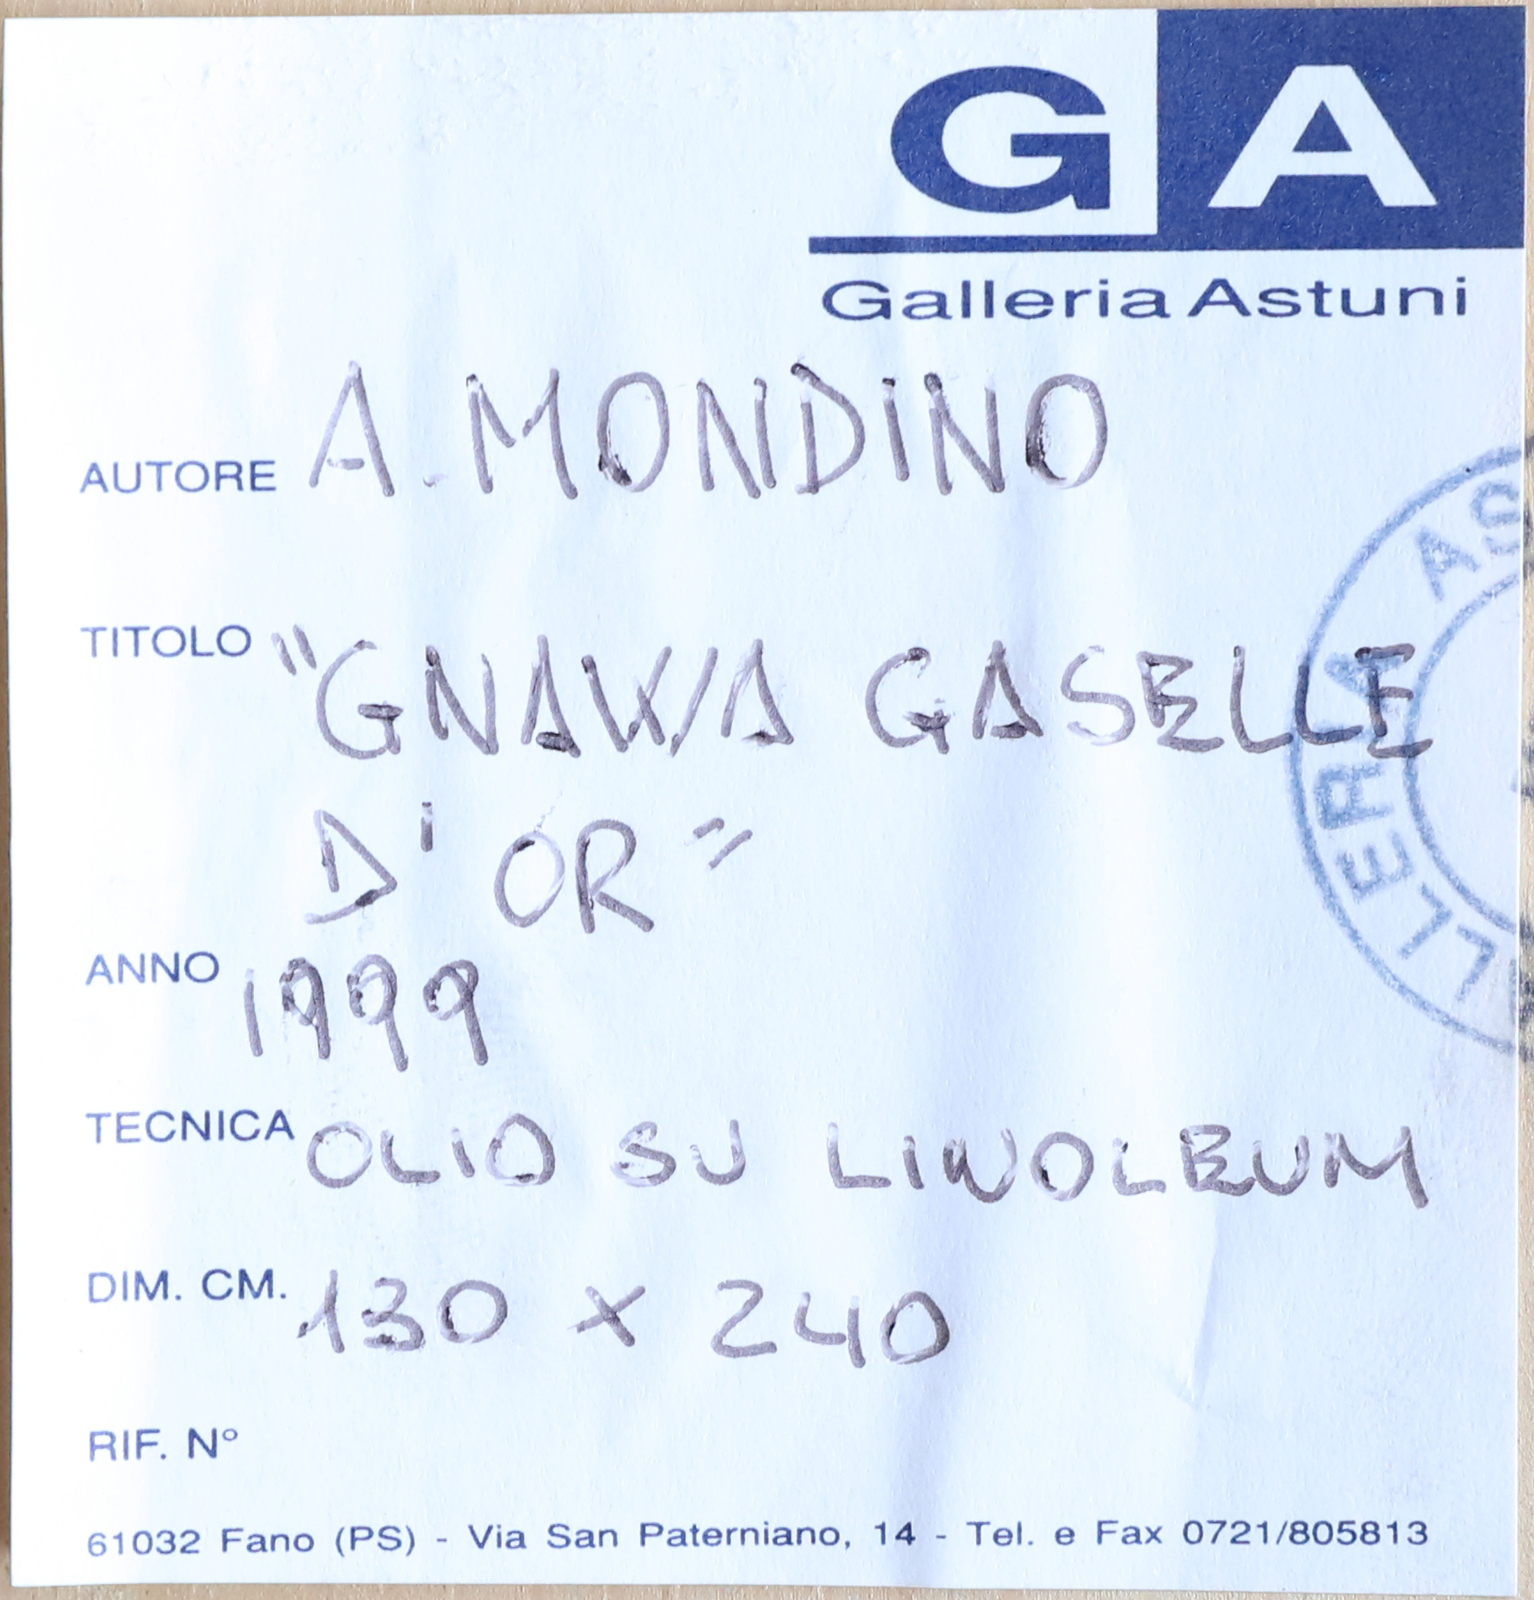 GA
Galleria Astuni
AUTORE A. MONDINO
TITOLO "GNAWA GASELLE
D'OR"
ANNO 1999
TECNICA OLIO SU LINOLEUM
DIM. CM. 130 x 240
RIF. N°
61032 Fano (PS) - Via San Paterniano, 14 - Tel. e Fax 0721/805813
LLERIA AS